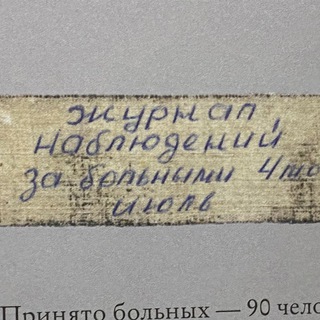 журнал
наблюдений
за больными 4 то
июлв
Принято больных — 90 чело